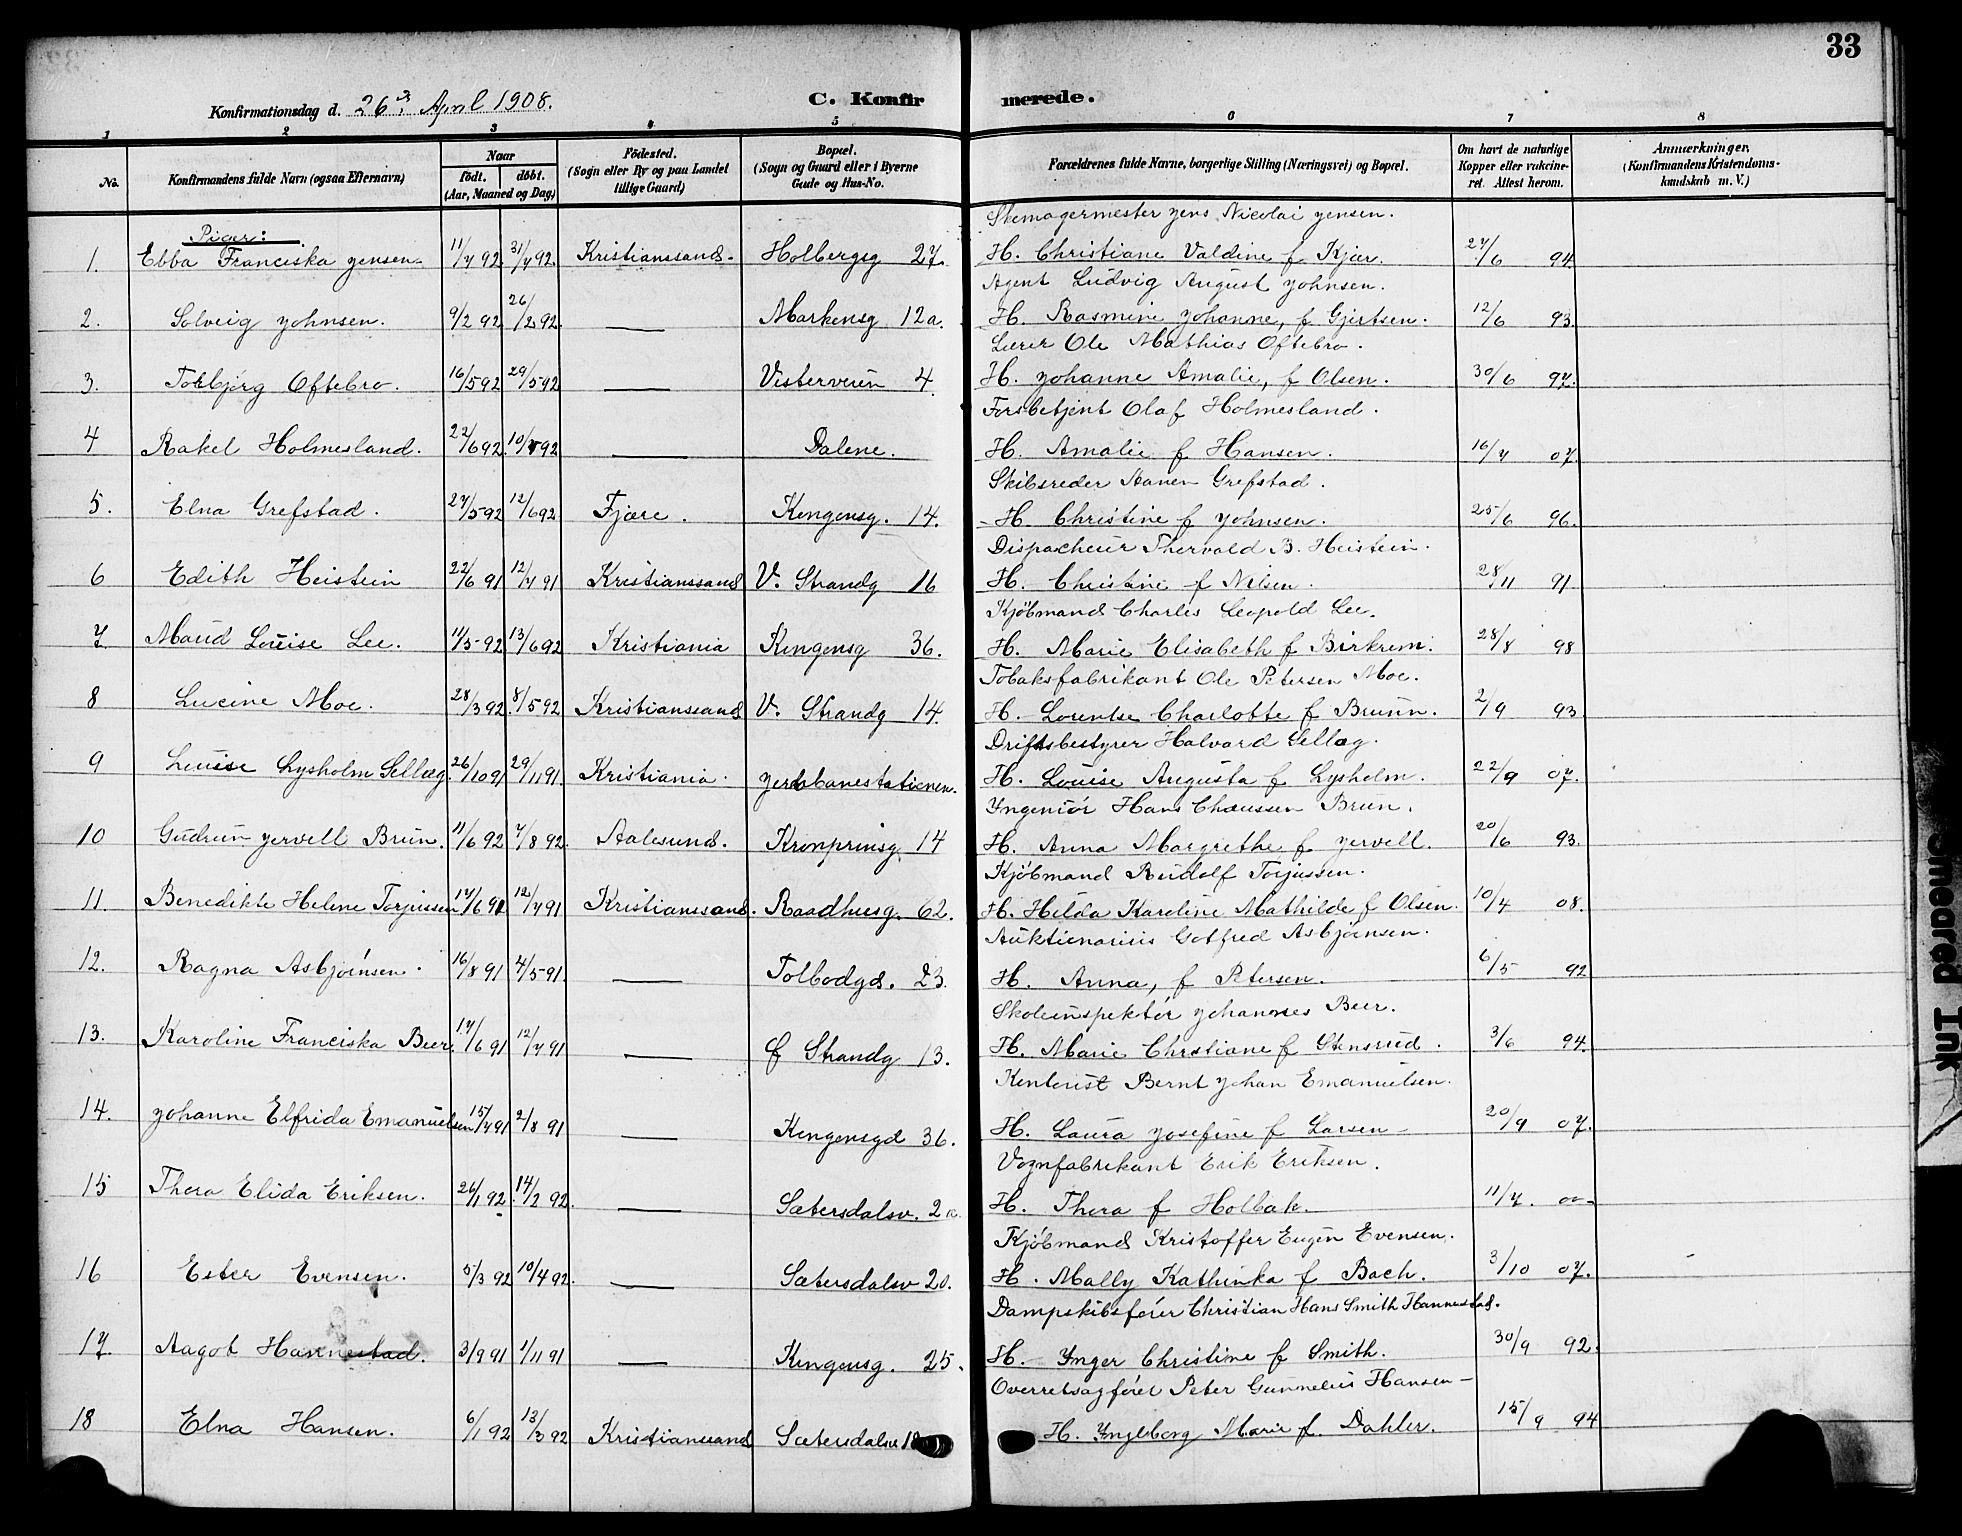 33
Konfirmationsdag d. 26de April 1908.
C. Konfirmerede.
1 2 3 4 5 6 7 8
No.
Konfirmandens fulde Navn (ogsaa Efternavn)
Naar
født. døbt.
(Aar, Maaned og Dag)
Fødested.
(Sogn eller By og paa Landet
tillige Gaard)
Bopæl.
(Sogn og Gaard eller i Byerne
Gade og Hus-No.
Forældrenes fulde Navne, borgerlige Stilling (Næringsvei) og Bopæl.
Om havt de naturlige
Kopper eller vakcine-
ret. Attest herom.
Anmærkninger.
(Konfirmandens Kristendoms-
kundskab m. V.)
Piger:
Skomagermester Jens Nicolai Jensen.
1. Ebba Franciska Jensen. 11/7 92. 31/7 92. Kristianssand. Holbergsg 27. H. Christiane Valdine f Kjær. 27/6 94.
Agent Ludvig August Johnsen.
2. Solveig Johnsen. 9/2 92 26/2 92. — Markensg 12a. H. Rasmine Johanne, f Gjertsen. 12/6 93.
Lærer Ole Mathias Oftebro.
3. Torbjørg Oftebro. 16/5 92 29/5 92 — Vesterveien 4. H. Johanne Amalie, f Olsen. 30/6 97.
Forsbetjent Olaf Holmesland.
4 Rakel Holmesland. 22/6 92. 10/7 92 — Dalene. H. Amalie f Hansen. 16/7 07.
Skibsreder Aanen Grefstad.
5. Elna Grefstad. 27/5 92 12/6 92 Fjære. Kongensg. 14. H. Christine f Johnsen. 25/6 96.
Dispacheur Thorvald B. Heistein.
6 Edith Heistein 22/6 91 12/7 91 Kristianssand V. Strandg 16 H. Christine f Nilsen. 28/11 91.
Kjøbmand Charles Leopold Lee.
7. Maud Louise Lee. 11/5 92 13/6 92 Kristiania Kongensg 36. H. Marie Elisabeth f Birkrem. 28/8 98
Tobaksfabrikant Ole Petersen Moe.
8 Lucine Moe. 28/3 92. 8/5 92 Kristianssand V. Strandg 14. H. Lorentse Charlotte f Bruun. 2/9 93.
Driftsbestyrer Halvard Sellæg.
9 Louise Lysholm Sellæg. 26/10 91 29/11 91. Kristiania. Jernbanestationen. H. Louise Augusta f Lysholm. 22/9 07.
Ingeniør Hans Chaussen Brun.
10 Gudrun Jervell Brun. 11/6 92 7/8 92. Aalesund. Kronprinsg. 14 H. Anna Margrethe f Jervell. 20/6 93.
Kjøbmand Rudolf Torjussen.
11. Benedikte Helene Torjussen 17/6 91 12/7 91 Kristianssand. Raadhusg. 62. H. Hilda Karoline Mathilde f Olsen. 10/4 08.
Auktionarius Gotfred Asbjørnsen.
12. Ragna Asbjørnsen. 16/8 91 4/5 91. — Tolbodgd. 23. H. Anna, f Petersen. 6/5 92
Skoleinspektør Johannes Beer.
13. Karoline Franciska Beer. 17/6 91 12/7 91 — Ø Strandg 13. H. Marie Chrstiane f Stensrud. 3/6 94.
Kontorist Bernt Johan Emanuelsen.
14. Johanne Elfrida Emanuelsen 15/7 91 2/8 91 — Kongensgd 36. H. Laura Josefine f Larsen 20/9 07.
Vognfabrikant Erik Eriksen.
15 Thora Elida Eriksen. 26/1 92. 14/2 92. — Sætersdalsv. 20. H. Thora f Holbæk. 11/7. 00
Kjøbmand Kristoffer Eugen Evensen.
16 Ester Evensen. 5/3 92 10/4 92. — Sætersdalsv 20. H. Mally Kathinka f Bach. 3/10 07.
Dampskibsfører Christian Hans Smith Hannestad.
17. Aagot Hannestad. 3/9 91 1/11 91 — Kongensg. 25. H. Inger Christine f Smith. 30/9 92.
Overretsagfører Peter Gunnelius Hansen
18 Elna Hansen. 6/1 92 13/3 92 Kristianssand Sætersdalsv 18 H. Ingeborg Marie f. Dahler. 15/9 94
Smeared Ink